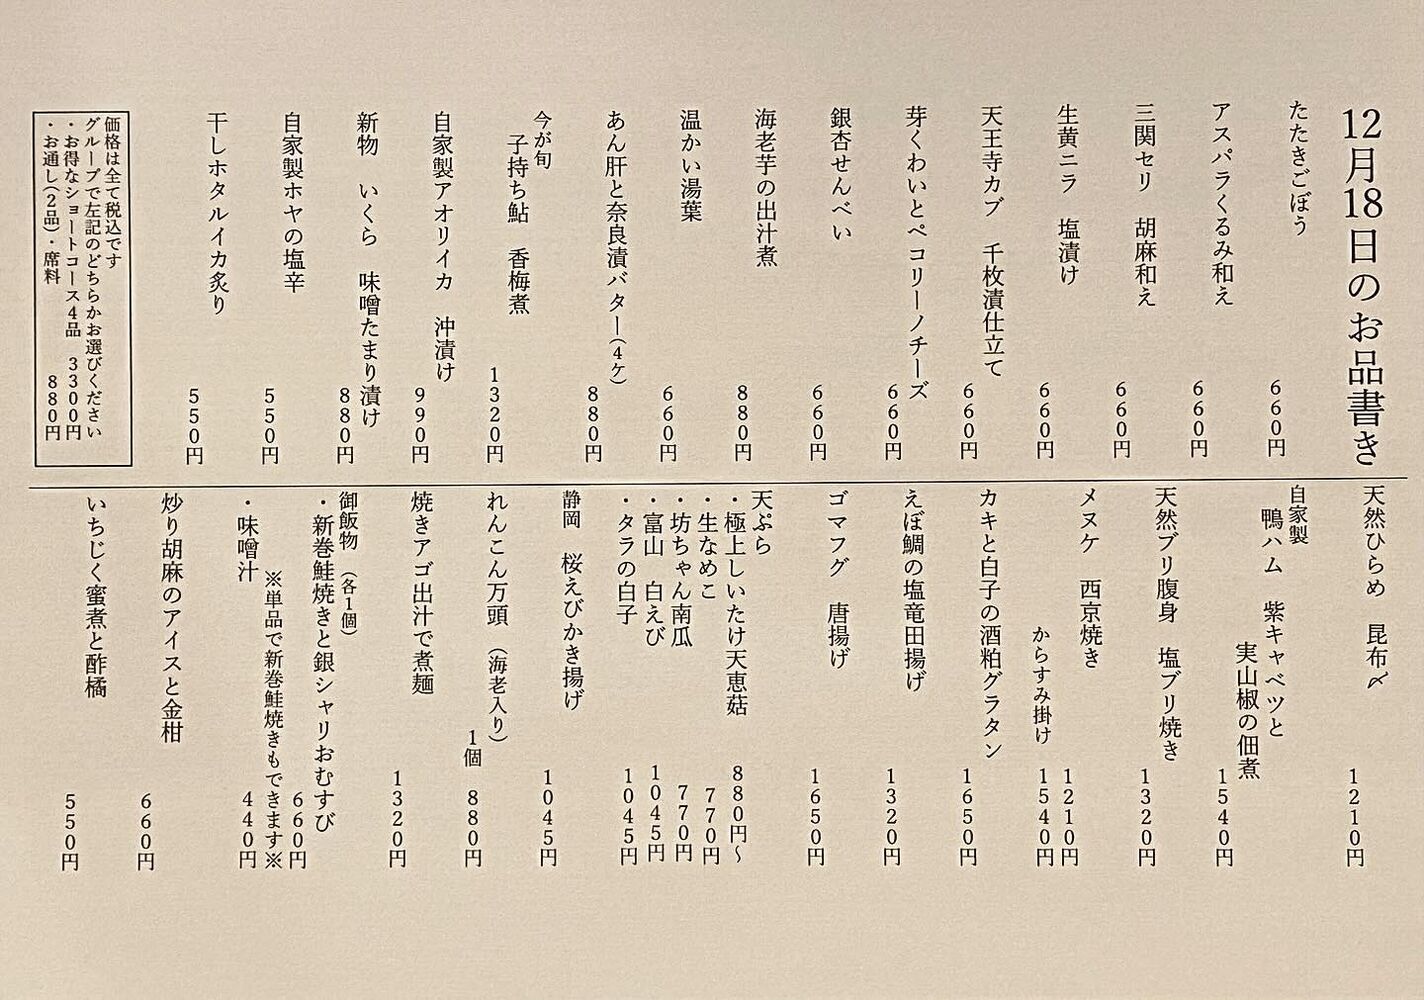 12月18日のお品書き
たたきごぼう
660円
アスパラくるみ和え
660円
三関セリ 胡麻和え
660円
生黄ニラ 塩漬け
660円
天王寺カブ 千枚漬仕立て
660円
芽くわいとペコリーノチーズ
660円
銀杏せんべい
660円
海老芋の出汁煮
880円
温かい湯葉
660円
あん肝と奈良漬バター(4ケ)
880円
今が旬
子持ち鮎 香梅煮
1320円
自家製アオリイカ 沖漬け
990円
新物 いくら 味噌たまり漬け
880円
自家製ホヤの塩辛
550円
干しホタルイカ炙り
550円
価格は全て税込です
グループで左記のどちらかお選びください
・お得なショートコース4品 3300円
・お通し(2品)・席料 880円
天然ひらめ 昆布〆
1210円
自家製
鴨ハム 紫キャベツと
実山椒の佃煮
1540円
天然ブリ腹身 塩ブリ焼き
1320円
メヌケ 西京焼き
1210円
からすみ掛け
1540円
カキと白子の酒粕グラタン
1650円
えぼ鯛の塩竜田揚げ
1320円
ゴマフグ 唐揚げ
1650円
天ぷら
・極上しいたけ天恵菇 880円～
・生なめこ 770円
・坊ちゃん南瓜 770円
・富山 白えび 1045円
・タラの白子 1045円
静岡 桜えびかき揚げ
1045円
れんこん万頭 (海老入り)
1個 880円
焼きアゴ出汁で煮麺
1320円
御飯物 (各1個)
・新巻鮭焼きと銀シャリおむすび
660円
※単品で新巻鮭焼きもできます※
・味噌汁
440円
炒り胡麻のアイスと金柑
660円
いちじく蜜煮と酢橘
550円